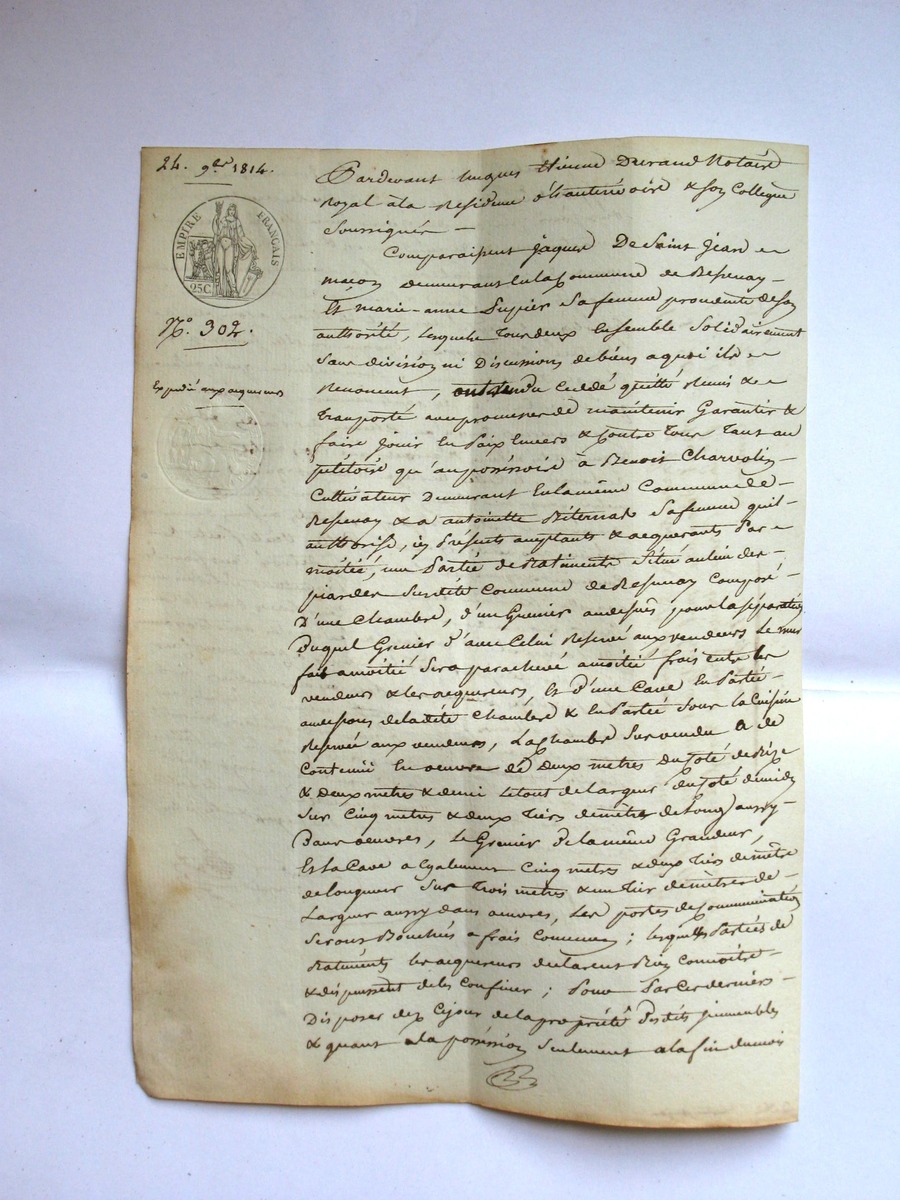 24. 9bre 1814.
EMPIRE FRANÇAIS
25C.
No. 302.
Expedié aux acquereurs
Pardevant hugues Etienne Durand Notaire
Royal a la Residence & son Collegue
Soussignés —
Comparaissent jaques De Saint jean
maçon demeurant en la Commune de Repenay —
Et marie-anne Dupier Sa femme procedante de son
authorité, lesquels tous deux Ensemble Solidairement
Sans division ni Discussions de biens a quoi ils
Renoncent, ont vendu Cedé quitté Remis &
Transporté avec promesse de maintenir Garantir &
faire jouir En Paix Envers & Contre Tous Tant au
pétitoire qu'au possessoire à Benoit Charvolin —
Cultivateur Demeurant En la même Commune de —
Repenay & a antoinette Sa femme qu'il —
authorise, icy Présents acceptants & acquerants Par
moitié, une Partie de Batiments Situé au lieu des —
piardes Susdite Commune de Repenay Composé —
D'une Chambre, d'un Grenier au dessus pour la séparation
Duquel Grenier D'avec Celui Reservé aux vendeurs Le mur
fait a moitié Sera parachevé a moitié frais entre les
vendeurs & les acquereurs, Et D'une Cave En Partie —
au dessous de la dite Chambre & En Partie Sous la Cuisine
Reservée aux vendeurs, La Chambre Sus vendu a de
Contenue En oeuvre de Deux metres Du Coté de Bize
& Deux metres & demi Le tout de Largeur Du Coté de midy
Sur Cinq metres & deux Tiers de mètre de Long aussy —
Dans oeuvres, Le Grenier De la même Grandeur,
Et La Cave a Egalement Cinq metres & deux Tiers de mètre
de Longueur Sur Trois metres & un Tier de mètres de —
Largeur aussy dans oeuvres, Les portes de Communication
Seront Bouchés a frais Communs; lesquelles Parties de
Batiments les acquereurs declarent Bien Connoitre —
& dispensent de les Confiner; Pour Par Ces derniers —
Disposer dez Cejour de la propriété Desdits immeubles
& quant a la possession Seulement a la fin du mois